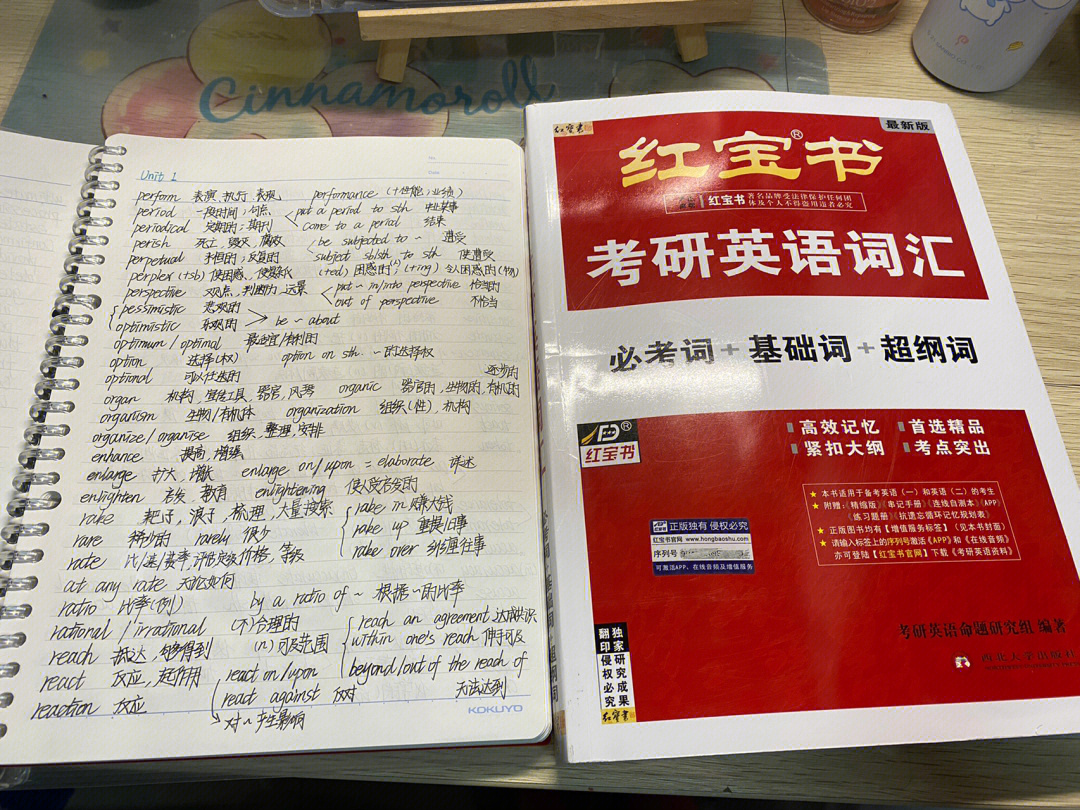 Cinnamoroll
Unit 1
perform 表演、执行、表现 performance (+性能;业绩)
period 一段时间;句点 put a period to sth 中止某事
periodical 定期的;期刊 come to a period 结束
perish 死亡、毁灭、腐败 be subjected to ~ 遭受
perpetual 永恒的;反复的 subject sb/sth to sth 使遭受
perplex (+sb) 使困惑、使复杂 (+ed) 困惑的(人) (+ing) 令人困惑的(物)
perspective 观点、判断力、远景 put ~ in/into perspective 恰当的
out of perspective 不恰当
pessimistic 悲观的
optimistic 乐观的 be ~ about
optimum / optimal 最适宜/有利的
option 选择(权) option on sth. ~的选择权
optional 可以任选的
organ 机构, 宣传工具, 器官, 风琴 organic 器官的, 生物的, 有机的
organism 生物/有机体 organization 组织(性), 机构
organize / organise 组织, 整理, 安排
enhance 提高, 增强
enlarge 扩大, 增长 enlarge on/upon = elaborate 详述
enlighten 启发, 教育 enlightening 使人受启发的
rake 耙子, 浪子, 梳理, 大量搜索 rake in 赚大钱
rake up 重提旧事
rare 稀少的 rarely 很少
rake over 纠缠往事
rate 比/速/费率, 评估定级, 价格, 等级
at any rate 无论如何
ratio ~ 比率(例) by a ratio of ~ 根据~的比率
rational / irrational (不)合理的 reach an agreement 达成共识
reach 抵达, 够得到 (n) 可及范围 within one's reach 伸手可及
react 反应, 起作用 react on/upon beyond/out of the reach of
react against 反对 无法达到
reaction 反应
对~产生影响
KOKUYO
红宝书
最新版
红宝书®
红宝书 著名品牌受法律保护任何团
体及个人不得盗用违者必究
考研英语词汇
必考词+基础词+超纲词
红宝书®
高效记忆 首选精品
紧扣大纲 考点突出
★ 本书适用于备考英语（一）和英语（二）的考生
★ 附赠:《精缩版》《串记手册》《连线自测本》《APP》
《练习题册》《抗遗忘循环记忆规划表》
★ 正版图书均有【增值服务标签】（见本书封面）
★ 请输入标签上的序列号激活《APP》和《在线音频》
亦可登陆【红宝书官网】下载《考研英语资料》
正版独有 侵权必究
红宝书官网 www.hongbaoshu.com
序列号
可激活APP、在线音频及增值服务
独家研究成果
翻印侵权必究
红宝书
考研英语命题研究组 编著
西北大学出版社